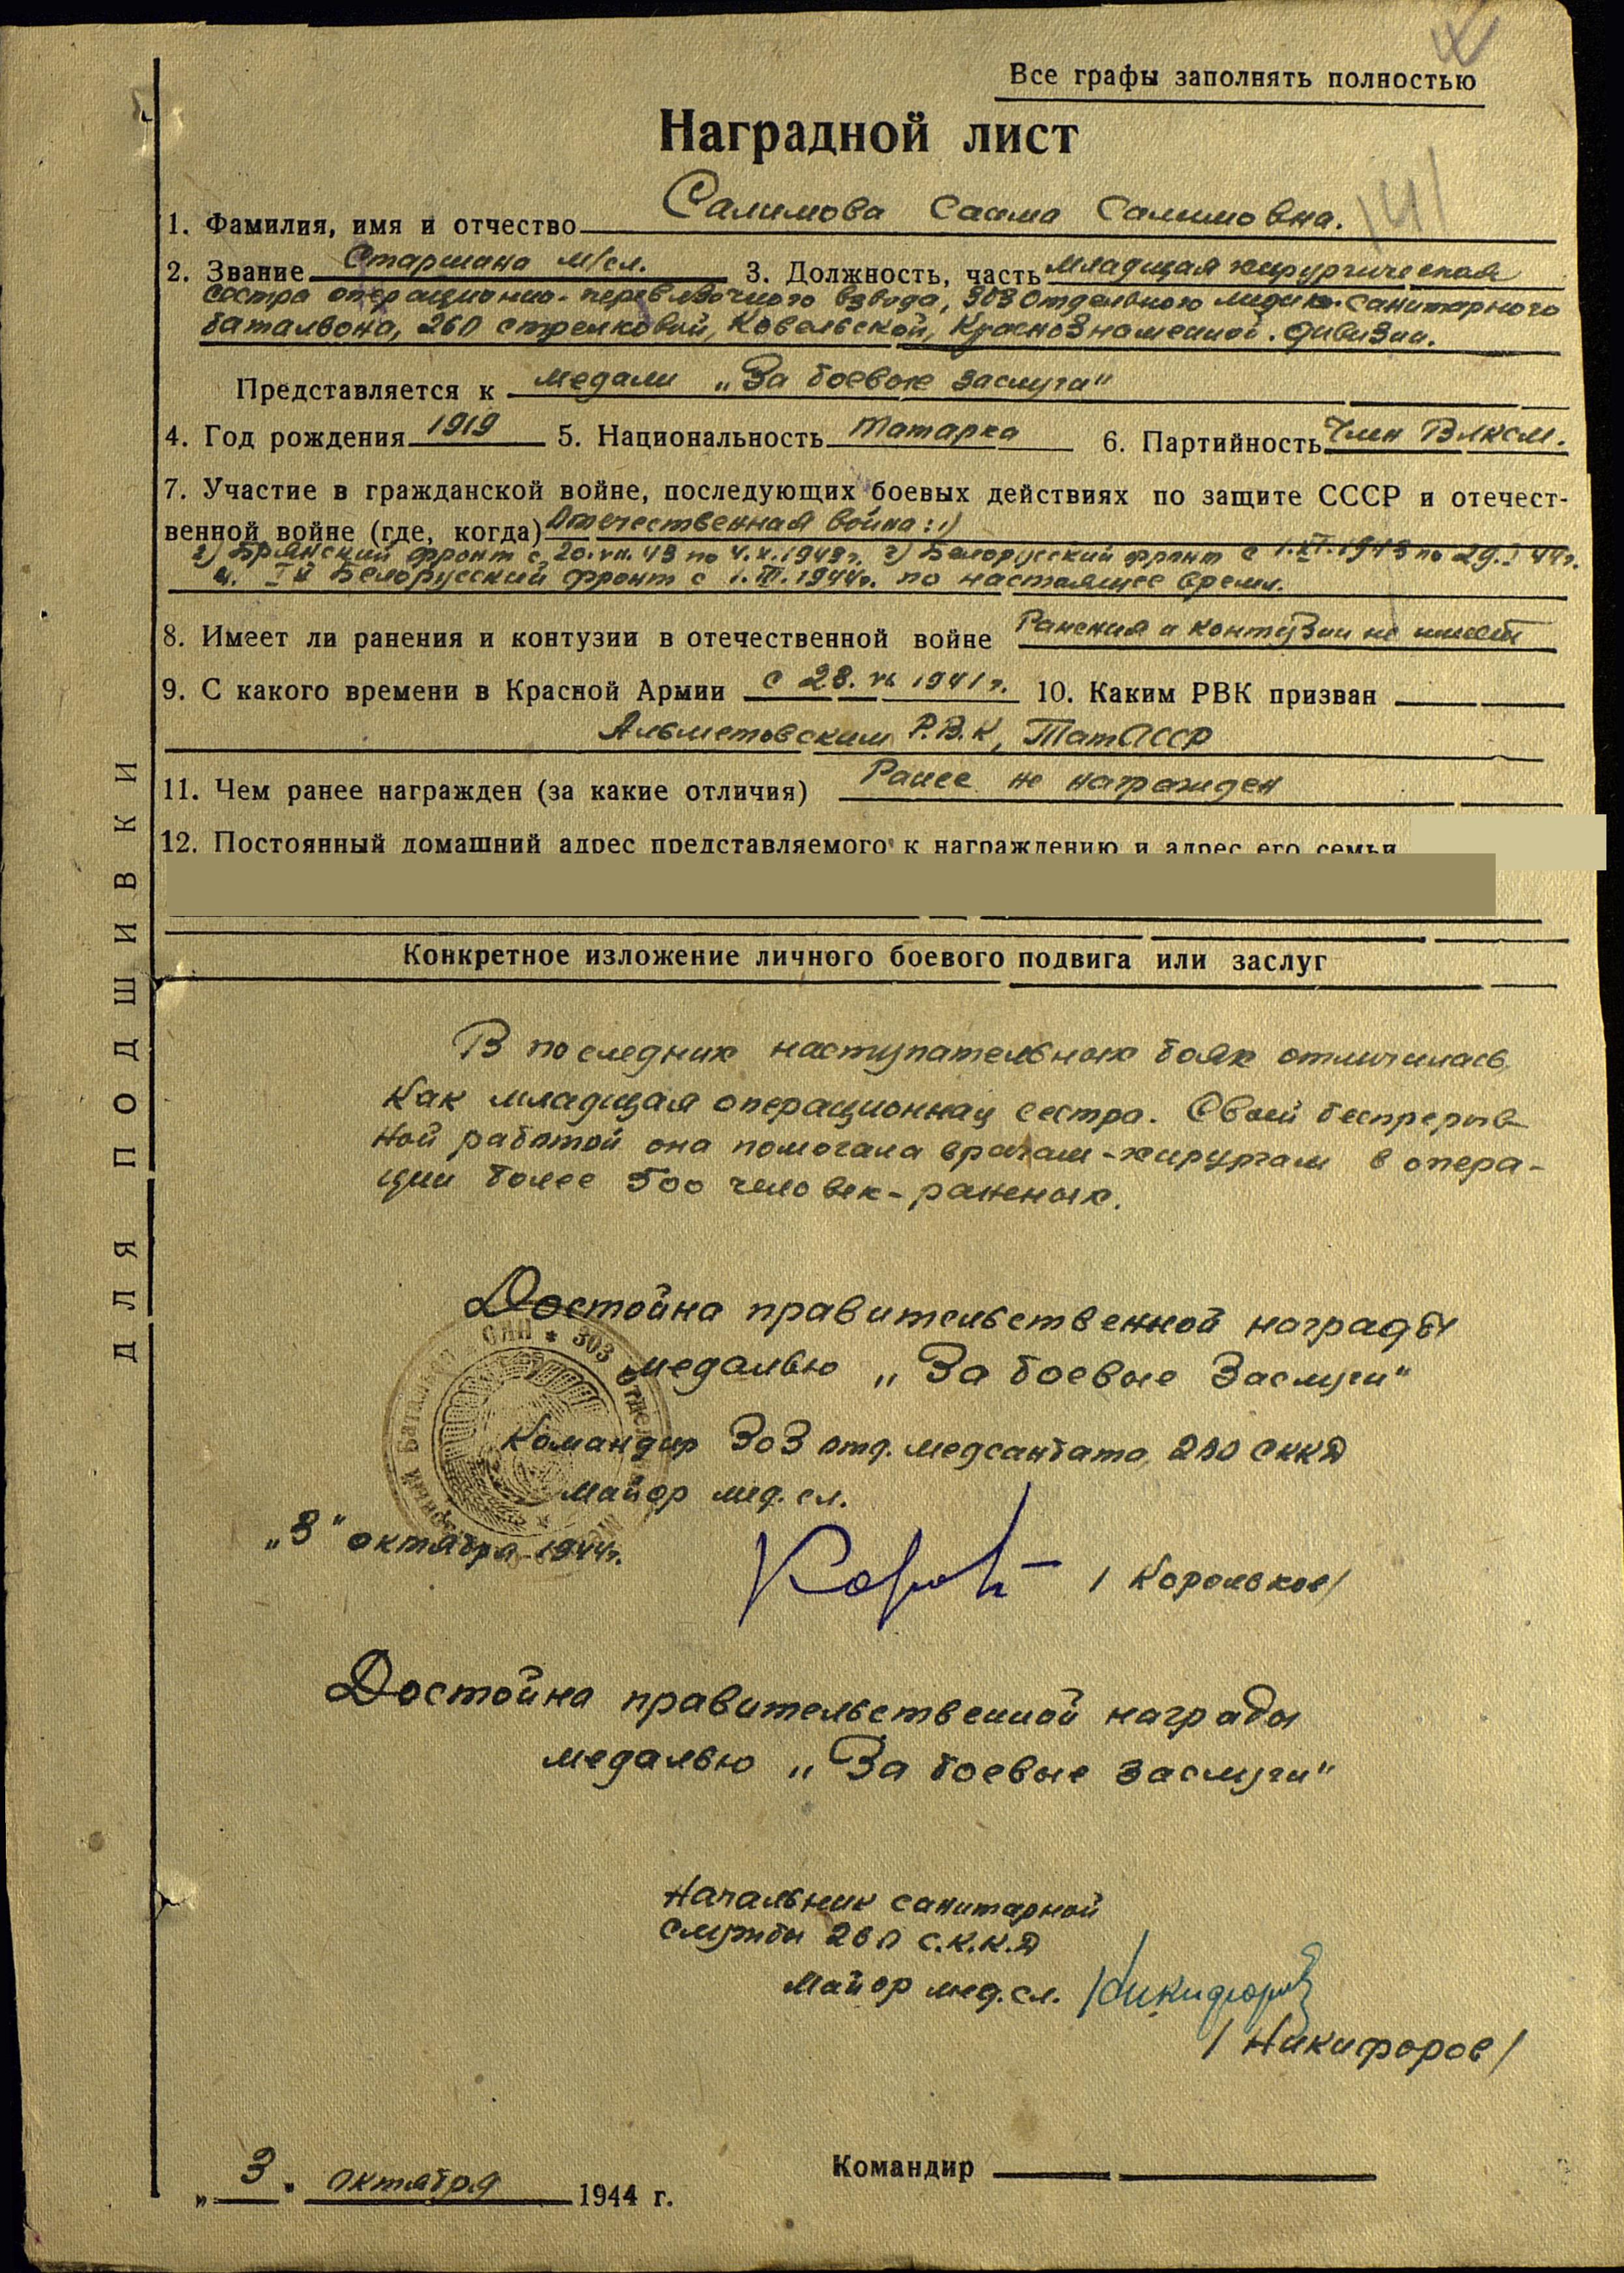 Все графы заполнять полностью
Наградной лист
141
1. Фамилия, имя и отчество Салимова Сагма Салимовна.
2. Звание Старшина м/сл. 3. Должность, часть младщая хирургическая
сестра операционно-перевязочного взвода, 303 Отдельного медико-санитарного
батальона, 260 стрелковой, Ковельской, Краснознаменной. дивизии.
Представляется к медали „За боевые заслуги"
4. Год рождения 1919 5. Национальность татарка 6. Партийность Член ВЛКСМ.
7. Участие в гражданской войне, последующих боевых действиях по защите СССР и отечест-
венной войне (где, когда) Отечественная война: 1)
2) Брянский фронт с 20.VII.43 по 4.X.1943г. 2) Белорусский фронт с 1.XI.1943 по 29.I 44г.
4. I й Белорусский фронт с 1.III.1944г. по настоящее время.
8. Имеет ли ранения и контузии в отечественной войне Ранения и контузии не имеет
9. С какого времени в Красной Армии с 28. VI 1941г. 10. Каким РВК призван
Альметовским Р.В.К, ТатАССР
11. Чем ранее награжден (за какие отличия) Ранее не награжден
12. Постоянный домашний адрес представляемого к награждению и адрес его семьи
Конкретное изложение личного боевого подвига или заслуг
В последних наступательных боях отличилась
как младщая операционная сестра. Своей беспрерыв-
ной работой она помогала врачам-хирургам в опера-
ции более 500 человек-раненых.
Достойна правительственной награды
медалью „За боевые Заслуги"
Командир 303 отд. медсанбата, 260 СККД
майор мед. сл.
„3" октября 1944г.
/Корольков/
Достойна правительственной награды
медалью „За боевые заслуги"
Начальник санитарной
службы 260 с.к.к.д
майор мед.сл. Никифоров
/Никифоров/
Командир
„3" октября 1944 г.
ДЛЯ ПОДШИВКИ